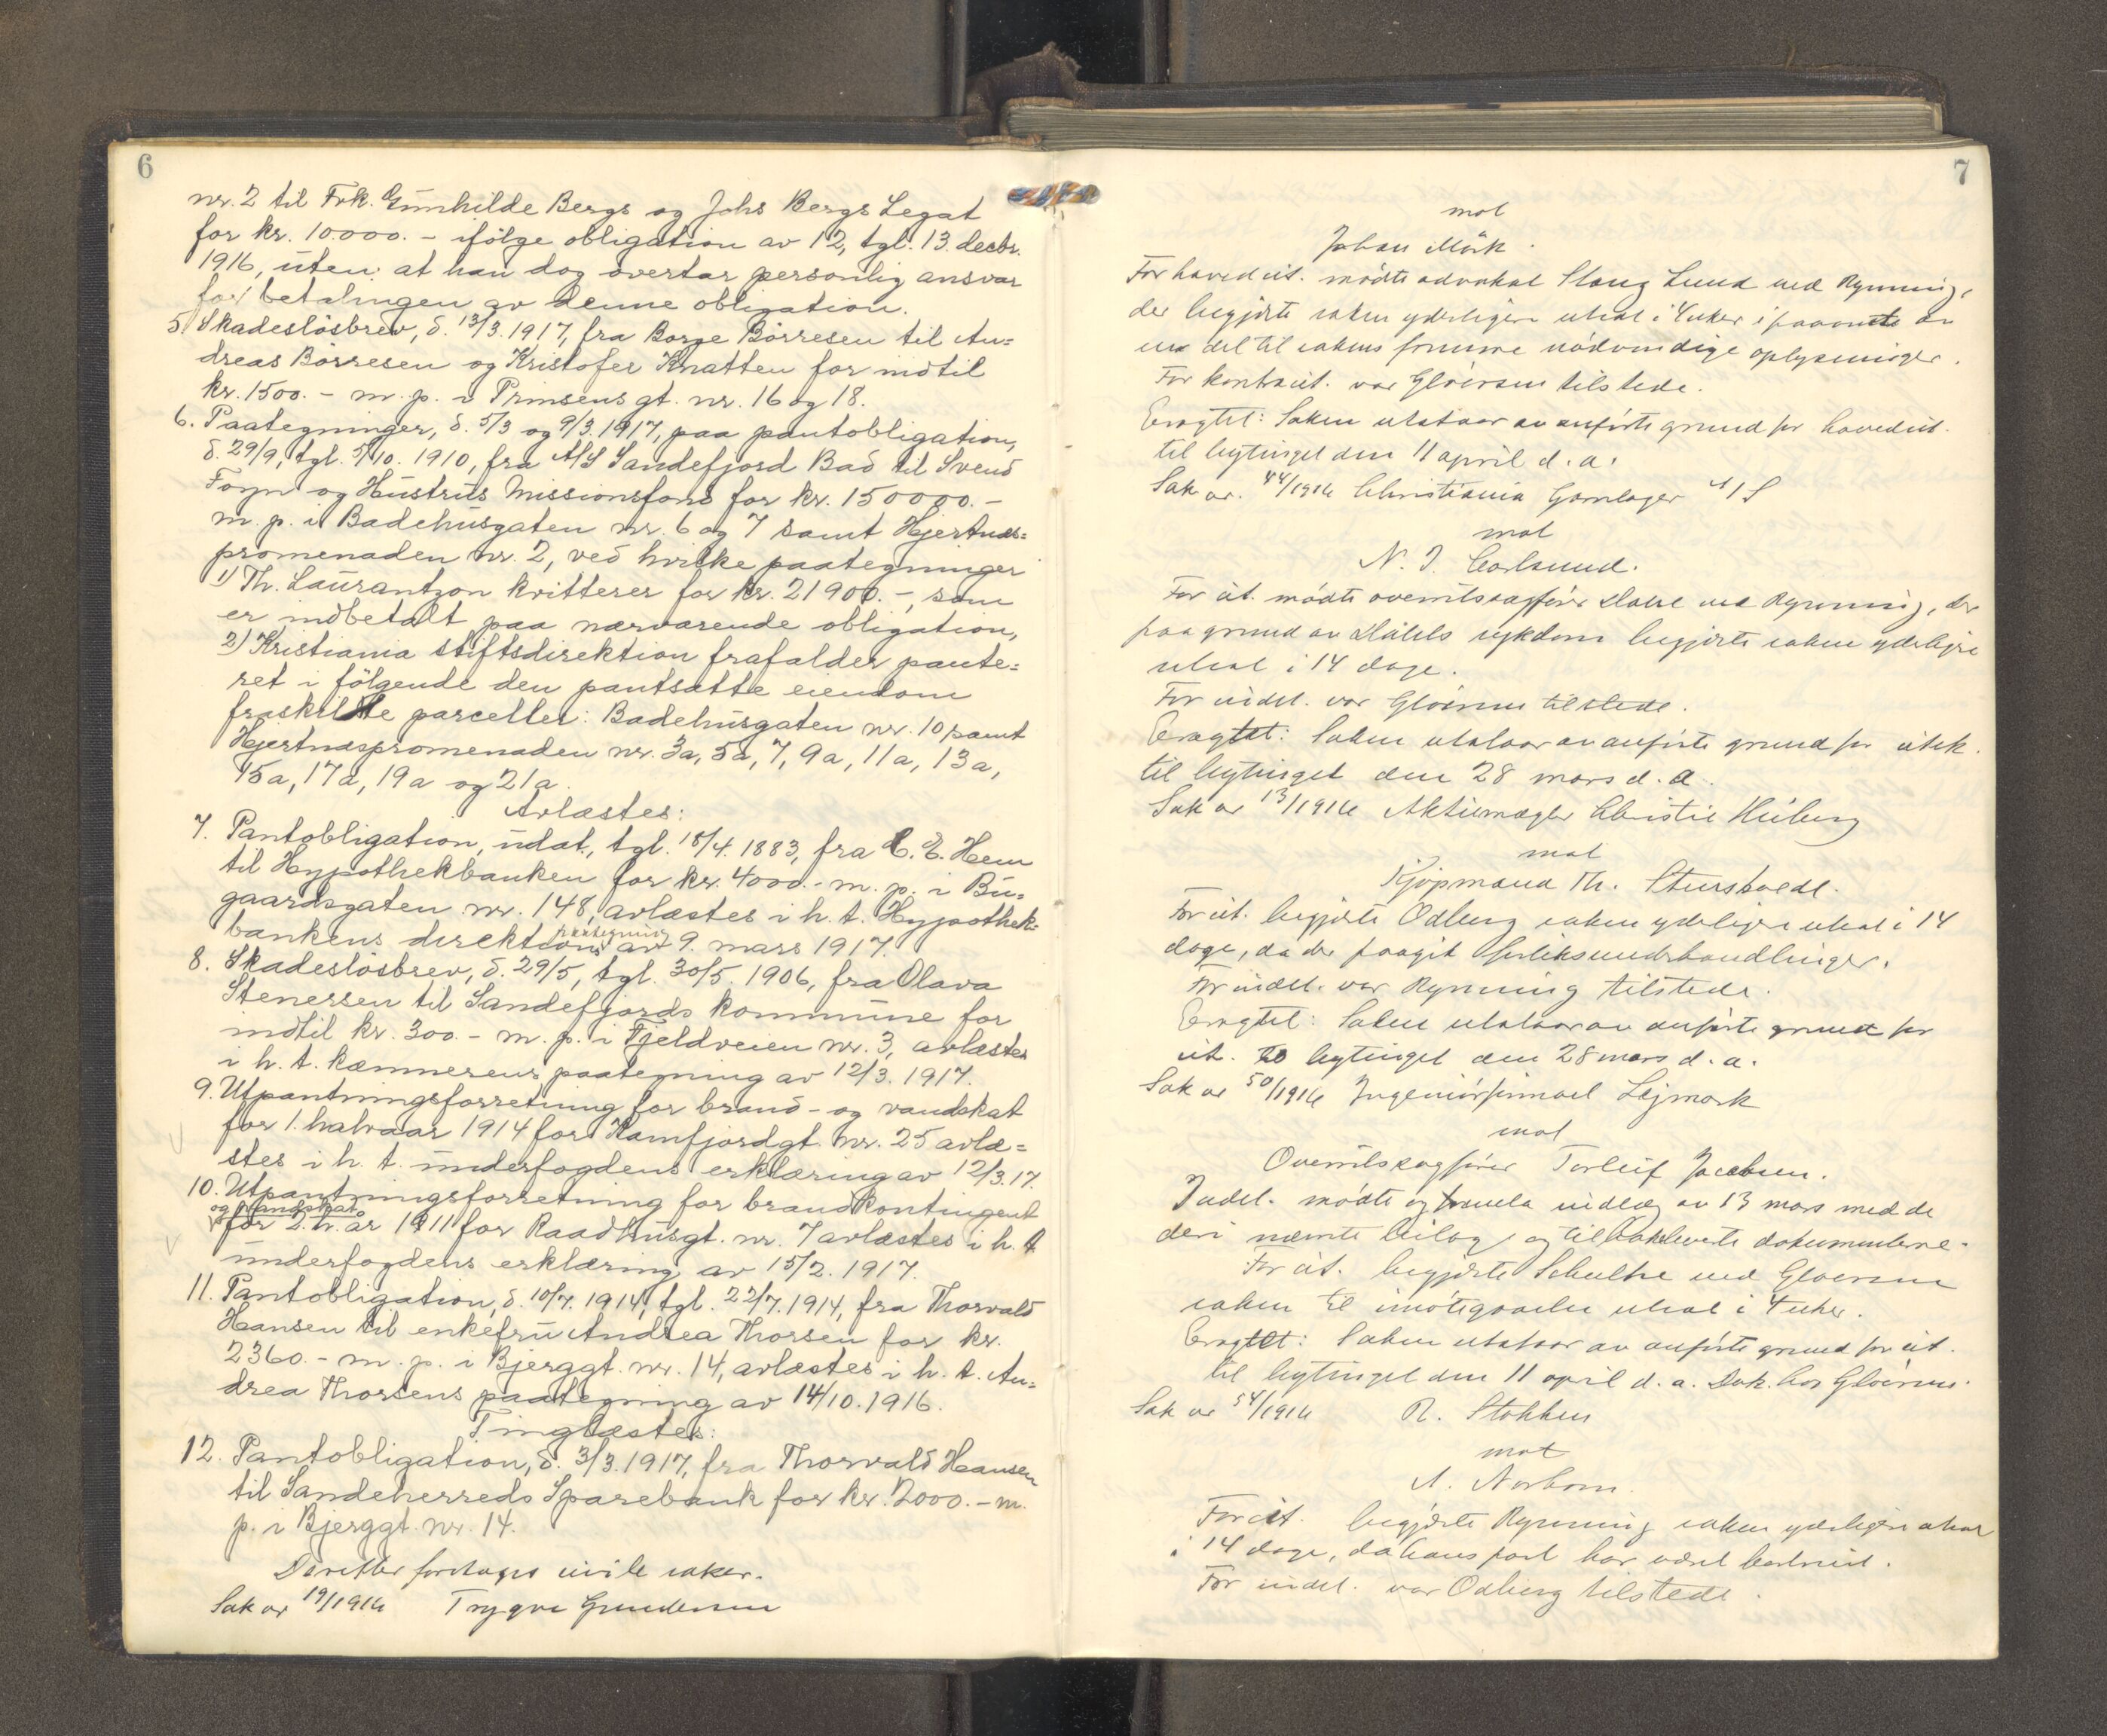 6
nr. 2 til Frk. Gunhilde Bergs og Johs Bergs Legat
for kr. 10.000.- ifölge obligation av 12, tgl. 13. decbr.
1916, uten at han dog overtar personlig ansvar
for betalingen av denne obligation.
5. Skadeslösbrev, d. 13/3. 1917, fra Borge Börresen til An=
dreas Börresen og Kristofer Knatten for indtil
kr. 1500.- m. p. i Prinsens gt. nr. 16 og 18.
6. Paategninger, d. 5/3 og 9/3. 1917, paa pantobligation,
d. 29/9, tgl. 5/10. 1910, fra A/S Sandefjord Bad til Svend
Foyn og Hustrus Missionsfond for kr. 150000.-
m. p. i Badehusgaten nr. 6 og 7 samt Hjertnæs=
promenaden nr. 2, ved hvilke paategninger
1) Th. Laurantzon kvitterer for kr. 21900.-, som
er indbetalt paa nærværende obligation,
2) Kristiania stiftsdirektion frafalder pante=
ret i följende den pantsatte eiendom
fraskilte parceller: Badehusgaten nr. 10 samt
Hjertnæspromenaden nr. 3a, 5a, 7, 9a, 11a, 13a,
15a, 17a, 19a og 21a.
Avlæstes:
7. Pantobligation, udat., tgl. 18/4. 1883, fra C. E. Hem
til Hypothekbanken for kr. 4000.- m. p. i Bu=
gaardsgaten nr. 148, avlæstes i h. t. Hypothek=
bankens direktions paategning av 9. mars 1917.
8. Skadeslösbrev, d. 29/5, tgl. 30/5. 1906, fra Olava
Stenersen til Sandefjords kommune for
indtil kr. 300.- m. p. i Fjeldveien nr. 3, avlæstes
i h. t. kæmnerens paategning av 12/3. 1917.
9. Utpantningsforretning for brand- og vandskat
for 1. halvaar 1914 for Kamfjordgt. nr. 25 avlæ=
stes i h. t. underfogdens erklæring av 12/3. 17.
10. Utpantningsforretning for brandkontingent
og vandskat
for 2. h. år 1911 for Raadhusgt. nr. 7 avlæstes i h. t.
underfogdens erklæring av 15/2. 1917.
11. Pantobligation, d. 10/7. 1914, tgl. 22/7. 1914, fra Thorvald
Hansen til enkefru Andrea Thorsen for kr.
2360.- m. p. i Bjerggt. nr. 14, avlæstes i h. t. An=
drea Thorsens paategning av 14/10. 1916.
Tinglæstes:
12. Pantobligation, d. 3/3. 1917, fra Thorvald Hansen
til Sandeherreds Sparebank for kr. 2000.- m.
p. i Bjerggt. nr. 14.
Derefter foretages civile saker.
Sak nr 19/1916 Trygve Gundersen
7
mot
Johan Mörk.
For hovedcit. mödte advokat Stang Lund ved Rynning,
der begjærte saken yderligere utsat i 4 uker i paavente av
en del til sakens fremme nödvendige oplysninger.
For kontracit. var Gloërsen tilstede.
Eragtet: Saken utstaar av anförte grund for hovedcit.
til bytinget den 11 april d. a.
Sak nr. 44/1916 Christiania Garnlager A/S
mot
N. J. Carlsund.
For cit. mödte overretssagförer ved Rynning, der
paa grund av sykdom begjærte saken yderligere
utsat i 14 dage.
For indst. var Gloërsen tilstede.
Eragtet: Saken utstaar av anförte grund for citk.
til bytinget den 28 mars d. a.
Sak nr 13/1916 Aktiemægler Christie Heiberg
mot
Kjöpmand Th. Stursholdt.
For cit. begjærte Odberg saken yderligere utsat i 14
dage, da der paagik forliksunderhandlinger.
For indst. var Rynning tilstede.
Eragtet: Saken utstaar av anförte grund for
cit. til bytinget den 28 mars d. a.
Sak nr 50/1916 Ingeniörfirmaet Lejmark
mot
Overretssagförer Torleif Jacobsen.
Indst. mödte og fremla indlæg av 13 mars med de
deri nævnte bilag og tilbakeleverte dokumenterne.
For cit. begjærte Schultze ved Gloersen
saken til imötegaaelse utsat i 4 uker.
Eragtet: Saken utstaar av anförte grund for cit.
til bytinget den 11 april d. a. Dok. hos Gloërsen.
Sak nr 54/1916 R. Stokken
mot
A. Norbom.
For cit. begjærte Rynning saken yderligere utsat
i 14 dage, da hans part har været bortreist.
For indst. var Odberg tilstede.